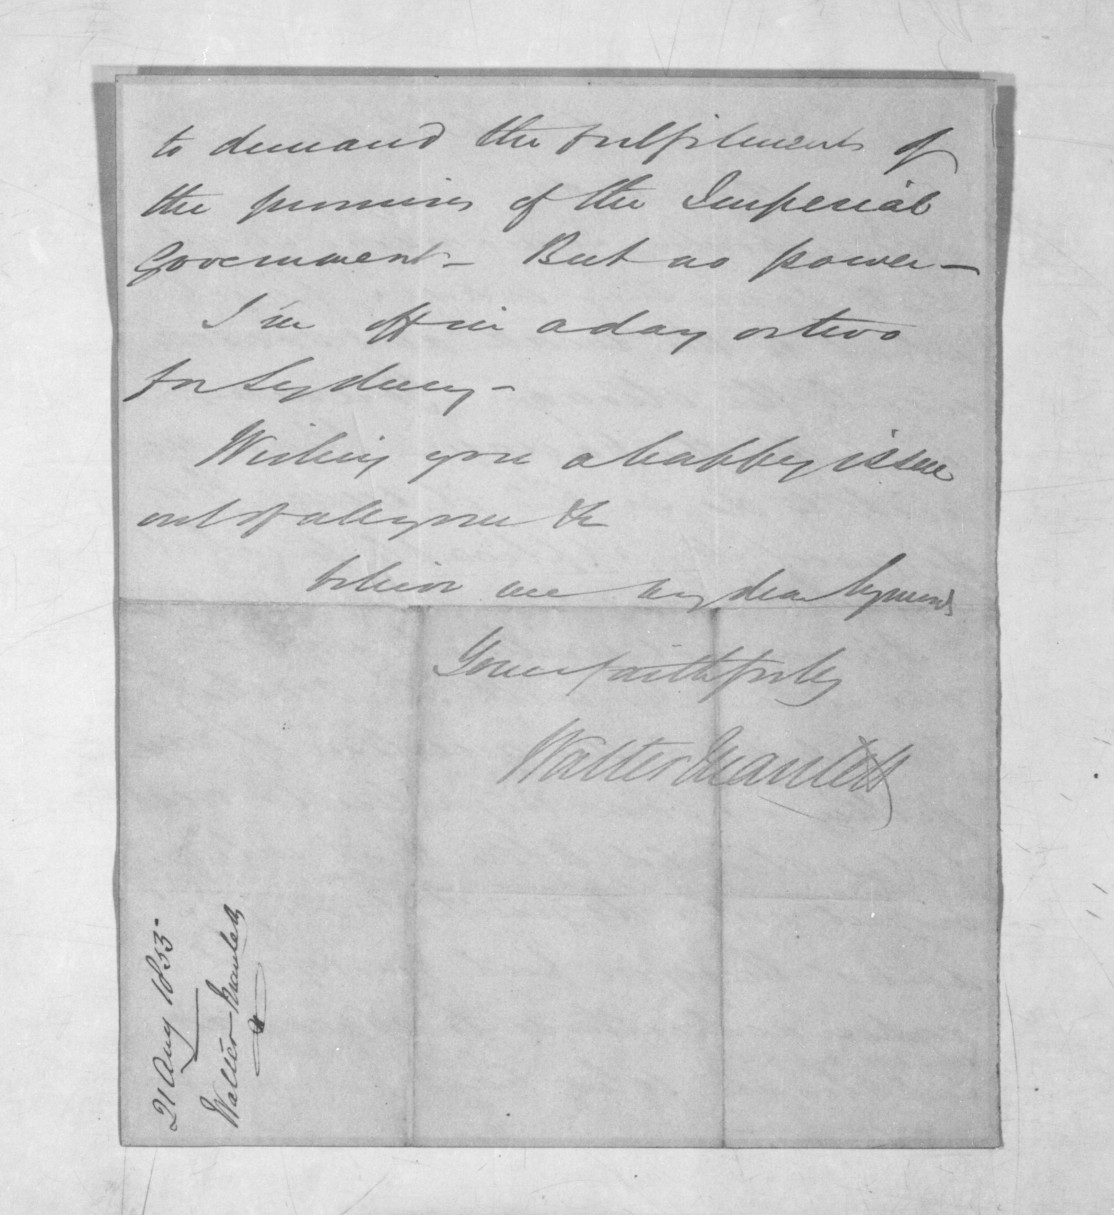 to demand the fulfilment of
the promises of the Imperial
Government – But no power –
I'm off in a day or two
for Sydney –
Wishing you a happy issue
out of all your &c
believe me my dear Symonds
Yours faithfully
Walter Mantell
21 Aug 1853
Walter Mantell